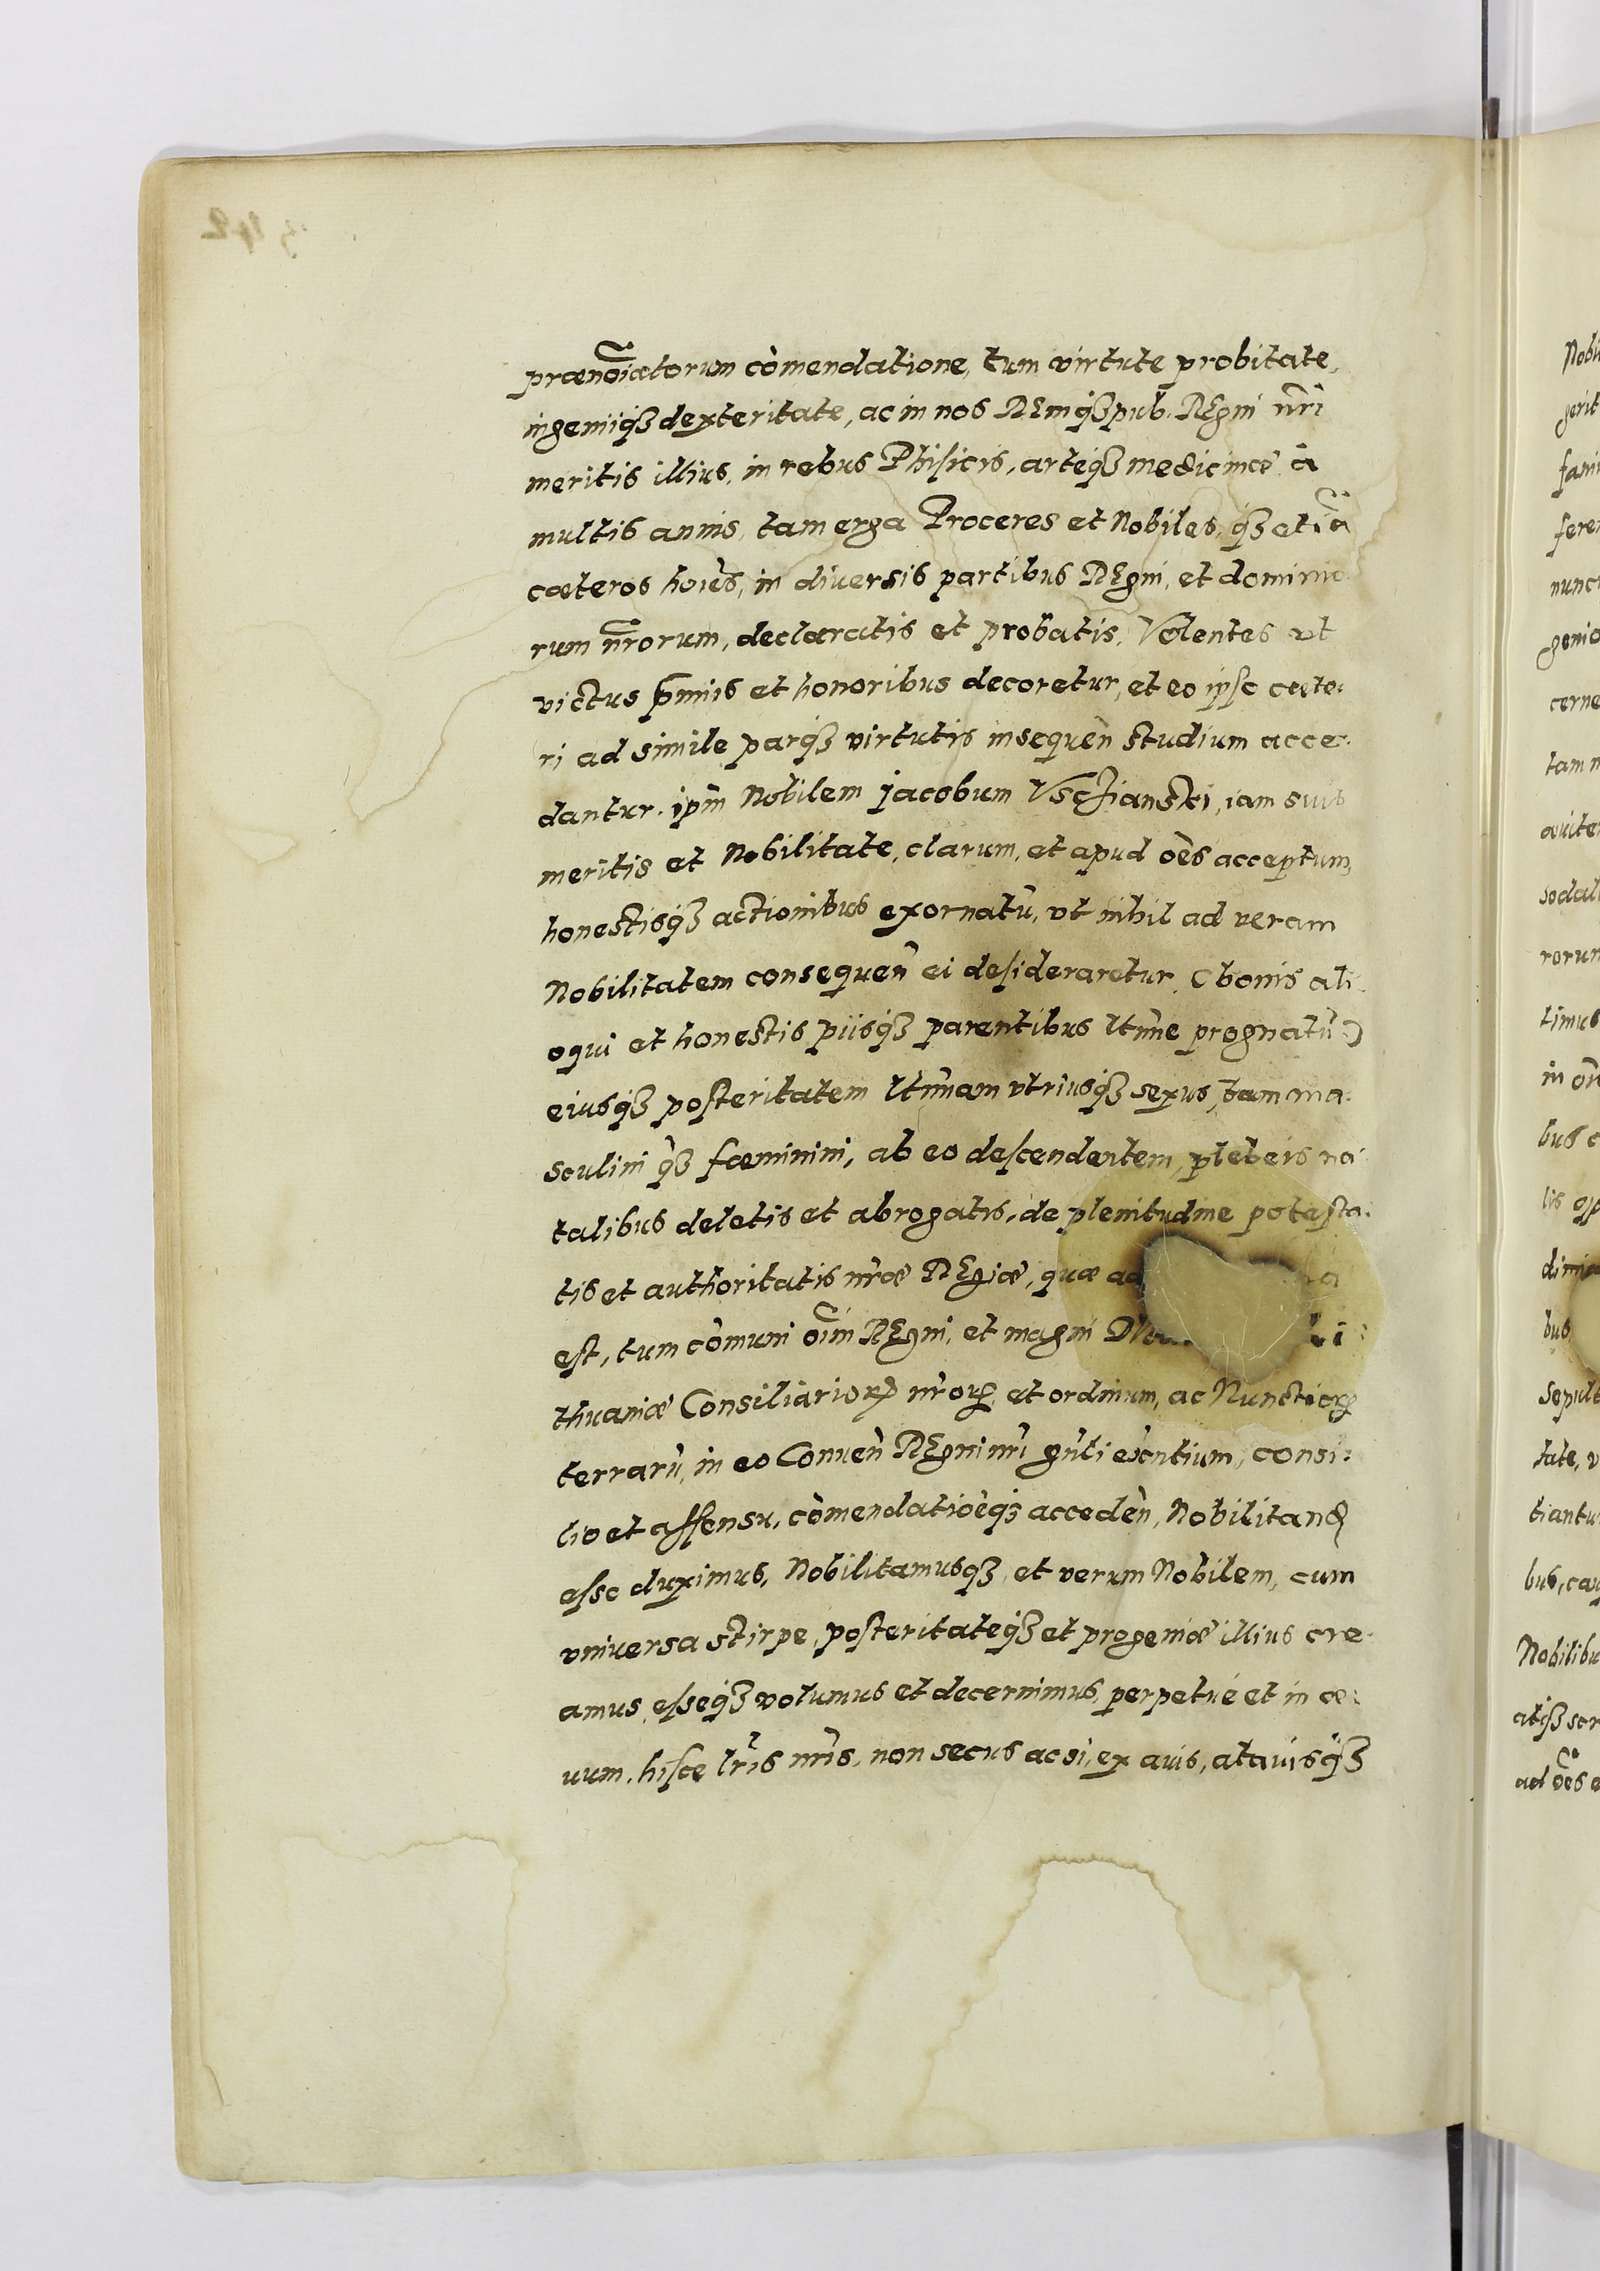 prænoĩatorum còmendatione, tum virtute probitate,
ingeniiq₃ dexteritate, ac in nos REmq₃ pub. REgni nr̃i
meritis illius, in rebus Phisicis, arteq₃ medicinæ à
multis annis, tam erga Proceres et Nobiles, q₃ etiã
cæteros hoıẽs, in diuersis partibus REgni, et dominio
rum nr̃orum, declaratis et probatis, Volentes vt
victus p̃miis et honoribus decoretur, et eo ipso cæte:
ri ad simile parq₃ virtutis insequeǹ studium acce:
dantur. ipm̃ Nobilem Jacobum Vsczianski, iam suis
meritis et Nobilitate, clarum, et apud oẽs acceptum,
honestisq₃ actionibus exornatũ, vt nihil ad veram
Nobilitatem consequeǹ ei desideraretur (bonis ali:
oqui et honestis piisq₃ parentibus ltm̃e prognatũ)
eiusq₃ posteritatem ltm̃am vtriusq₃ sexus, tam ma:
sculini q₃ fœminini, ab eo descendentem, plebeis na:
talibus deletis et abrogatis, de plenitudine potesta:
tis et authoritatis nr̃æ REgiæ, quæ ad
est, tum còmuni oĩm REgni, et magni li:
thuaniæ Consiliarioꝝ nr̃oꝝ, et ordinum, ac Nunctioꝝ
terrarũ, in eo Conueǹ REgni nr̃i gñli exn̄tium, consi:
lio et assensu, còmendatioẽq₃ accedeǹ, Nobilitanꝺ
esse duximus, Nobilitamusq₃, et verum Nobilem, cum
vniuersa stirpe, posteritateq₃ et progeniæ illius cre:
amus esseq₃ volumus et decernimus, perpetué et in æ:
uum, hisce lr̃is nr̃is, non secus ac si, ex auis, atauisq₃